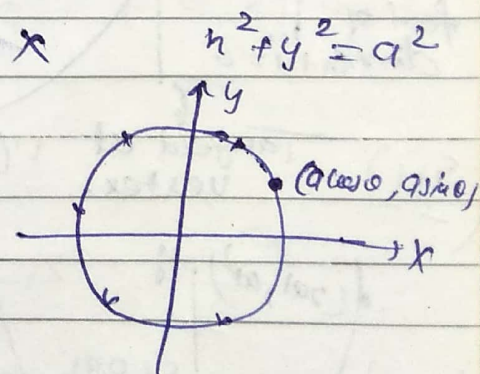 x x²+y²=a²
y
(acosθ, asinθ)
x